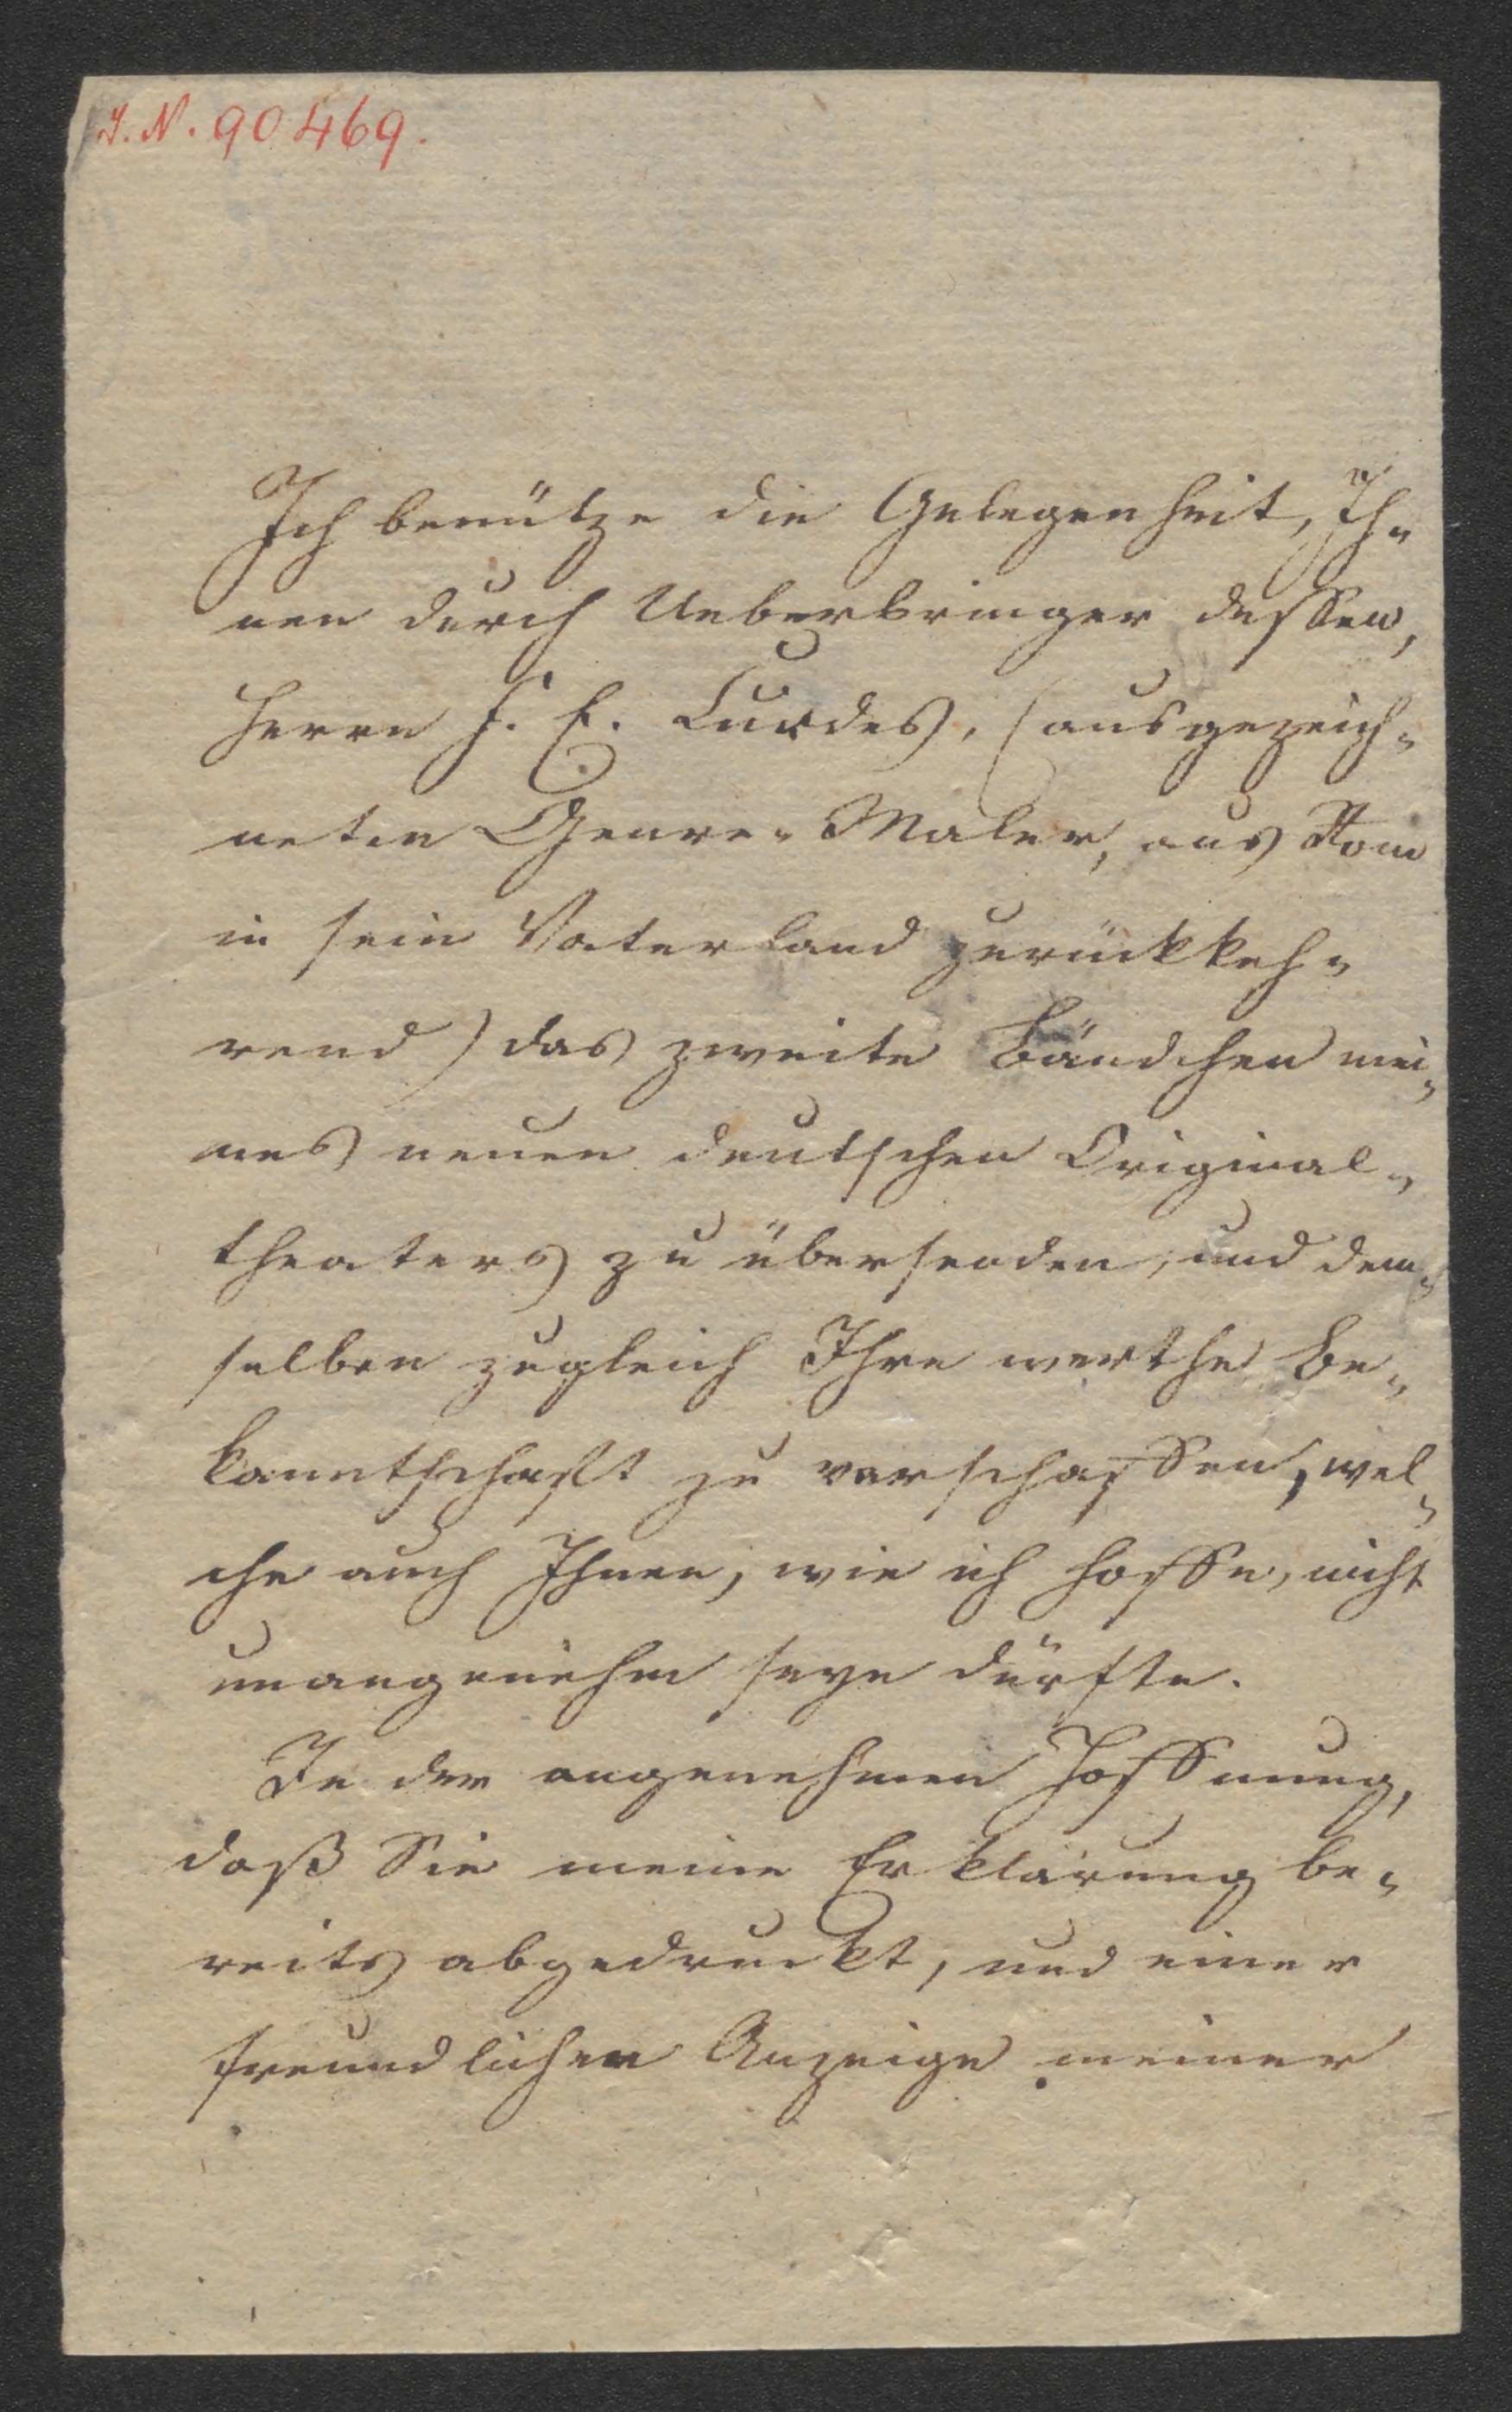 I. N. 90469.
Ich benütze die Gelegenheit, Ih-
nen durch Ueberbringer dessen,
Herrn J. E. Curdes, (ausgezeich-
neten Genre-Maler, aus Rom
in sein Vaterland zurückkeh-
rend) das zweite Bändchen mei-
nes neuen deutschen Original-
theaters zu übersenden, und dem-
selben zugleich Ihre werthe Be-
kanntschaft zu verschaffen, wel-
che auch Ihnen, wie ich hoffe, nicht
unangenehm seyn dürfte.
In der angenehmen Hoffnung,
daß Sie meine Erklärung be-
reits abgedruckt, und einer
freundlichen Anzeige meiner